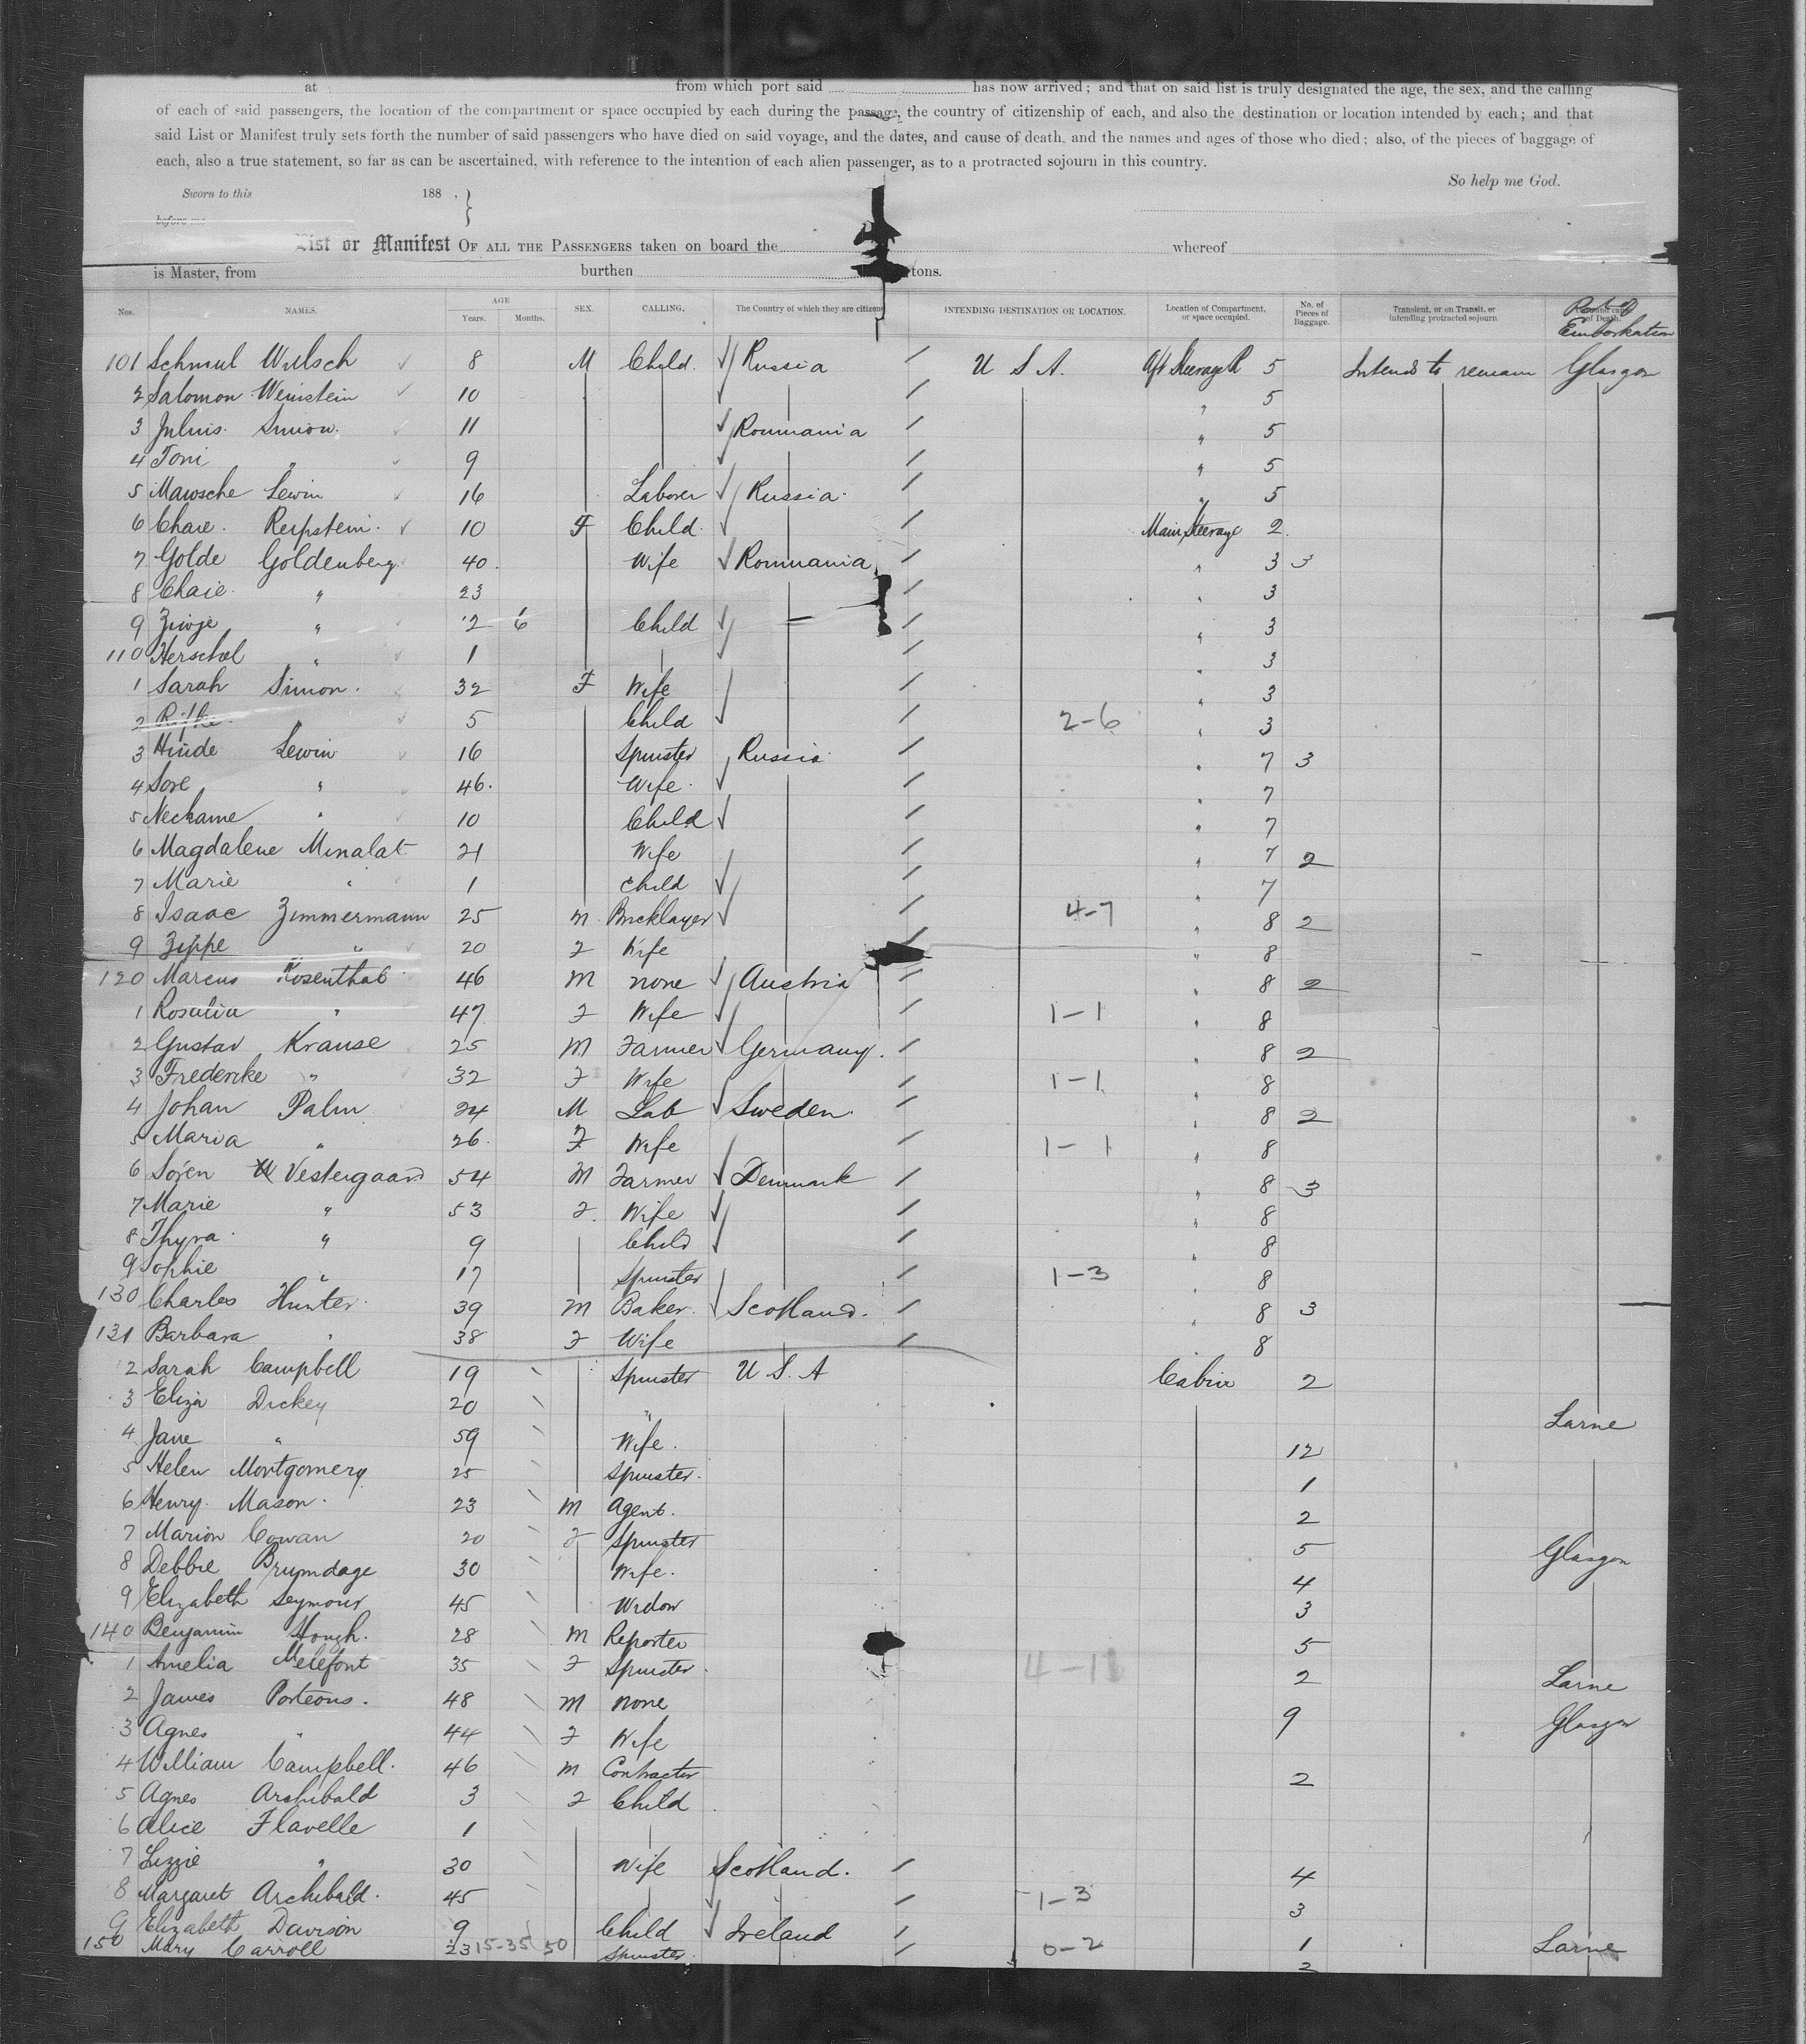 at from which port said has now arrived; and that on said list is truly designated the age, the sex, and the calling
of each of said passengers, the location of the compartment or space occupied by each during the passage, the country of citizenship of each, and also the destination or location intended by each; and that
said List or Manifest truly sets forth the number of said passengers who have died on said voyage, and the dates, and cause of death, and the names and ages of those who died; also, of the pieces of baggage of
each, also a true statement, so far as can be ascertained, with reference to the intention of each alien passenger, as to a protracted sojourn in this country.
So help me God.
Sworn to this 188 .
before me
List or Manifest OF ALL THE PASSENGERS taken on board the whereof
is Master, from burthen tons.
Nos. NAMES. AGE Years. Months. SEX. CALLING. The Country of which they are citizens INTENDING DESTINATION OR LOCATION. Location of Compartment, or space occupied. No. of Pieces of Baggage. Transient, or on Transit, or intending protracted sojourn. Port of Embarkation
101 Schmul Wulsch 8 M Child Russia U S A. Aft Steerage 5 Intends to remain Glasgow
2 Salomon Weinstein 10 " 5
3 Julius Simon 11 Roumania " 5
4 Toni " 9 " 5
5 Mawsche Lewin 16 Laborer Russia " 5
6 Chaie Reipstein 10 F Child Main Steerage 2
7 Golde Goldenberg 40 Wife Roumania " 3 3
8 Chaie " 23 " 3
9 Ziwje " 2 6 Child " 3
110 Herschel " 1 " 3
1 Sarah Simon 32 F Wife " 3
2 Rifke " 5 Child 2-6 " 3
3 Hinde Lewin 16 Spinster Russia " 7 3
4 Sore " 46 Wife " 7
5 Nechame " 10 Child " 7
6 Magdalene Minalat 21 Wife " 7 2
7 Marie " 1 Child " 7
8 Isaac Zimmermann 25 M Bricklayer 4-7 " 8 2
9 Zippe " 20 F Wife " 8
120 Marcus Rosenthal 46 M none Austria " 8 2
1 Rosalia " 47 F Wife 1-1 " 8
2 Gustav Krause 25 M Farmer Germany " 8 2
3 Frederike " 32 F Wife 1-1 " 8
4 Johan Palm 24 M Lab Sweden " 8 2
5 Maria " 26 F Wife 1-1 " 8
6 Sojen Vestergaard 54 M Farmer Denmark " 8 3
7 Marie " 53 F Wife " 8
8 Thyra " 9 Child " 8
9 Sophie " 17 Spinster 1-3 " 8
130 Charles Hunter 39 M Baker Scotland " 8 3
131 Barbara " 38 F Wife " 8
2 Sarah Campbell 19 Spinster U S. A Cabin 2
3 Eliza Dickey 20 " Larne
4 Jane " 59 Wife 12
5 Helen Montgomery 25 Spinster 1
6 Henry Mason 23 M Agent 2
7 Marion Cowan 20 F Spinster 5 Glasgow
8 Debbie Brumdage 30 Wife 4
9 Elizabeth Seymour 45 Widow 3
140 Benjamin Hough 28 M Reporter 5
1 Amelia Melefont 35 F Spinster 4-11 2 Larne
2 James Porteous 48 M none 9 Glasgow
3 Agnes " 44 F Wife
4 William Campbell 46 M Contractor 2
5 Agnes Archibald 3 F Child
6 Alice Flavelle 1
7 Lizzie " 30 Wife Scotland 4
8 Margaret Archibald 45 1-3 3
9 Elizabeth Davison 9 Child Ireland 1 Larne
150 Mary Carroll 23 15-35 50 Spinster 0-2 2